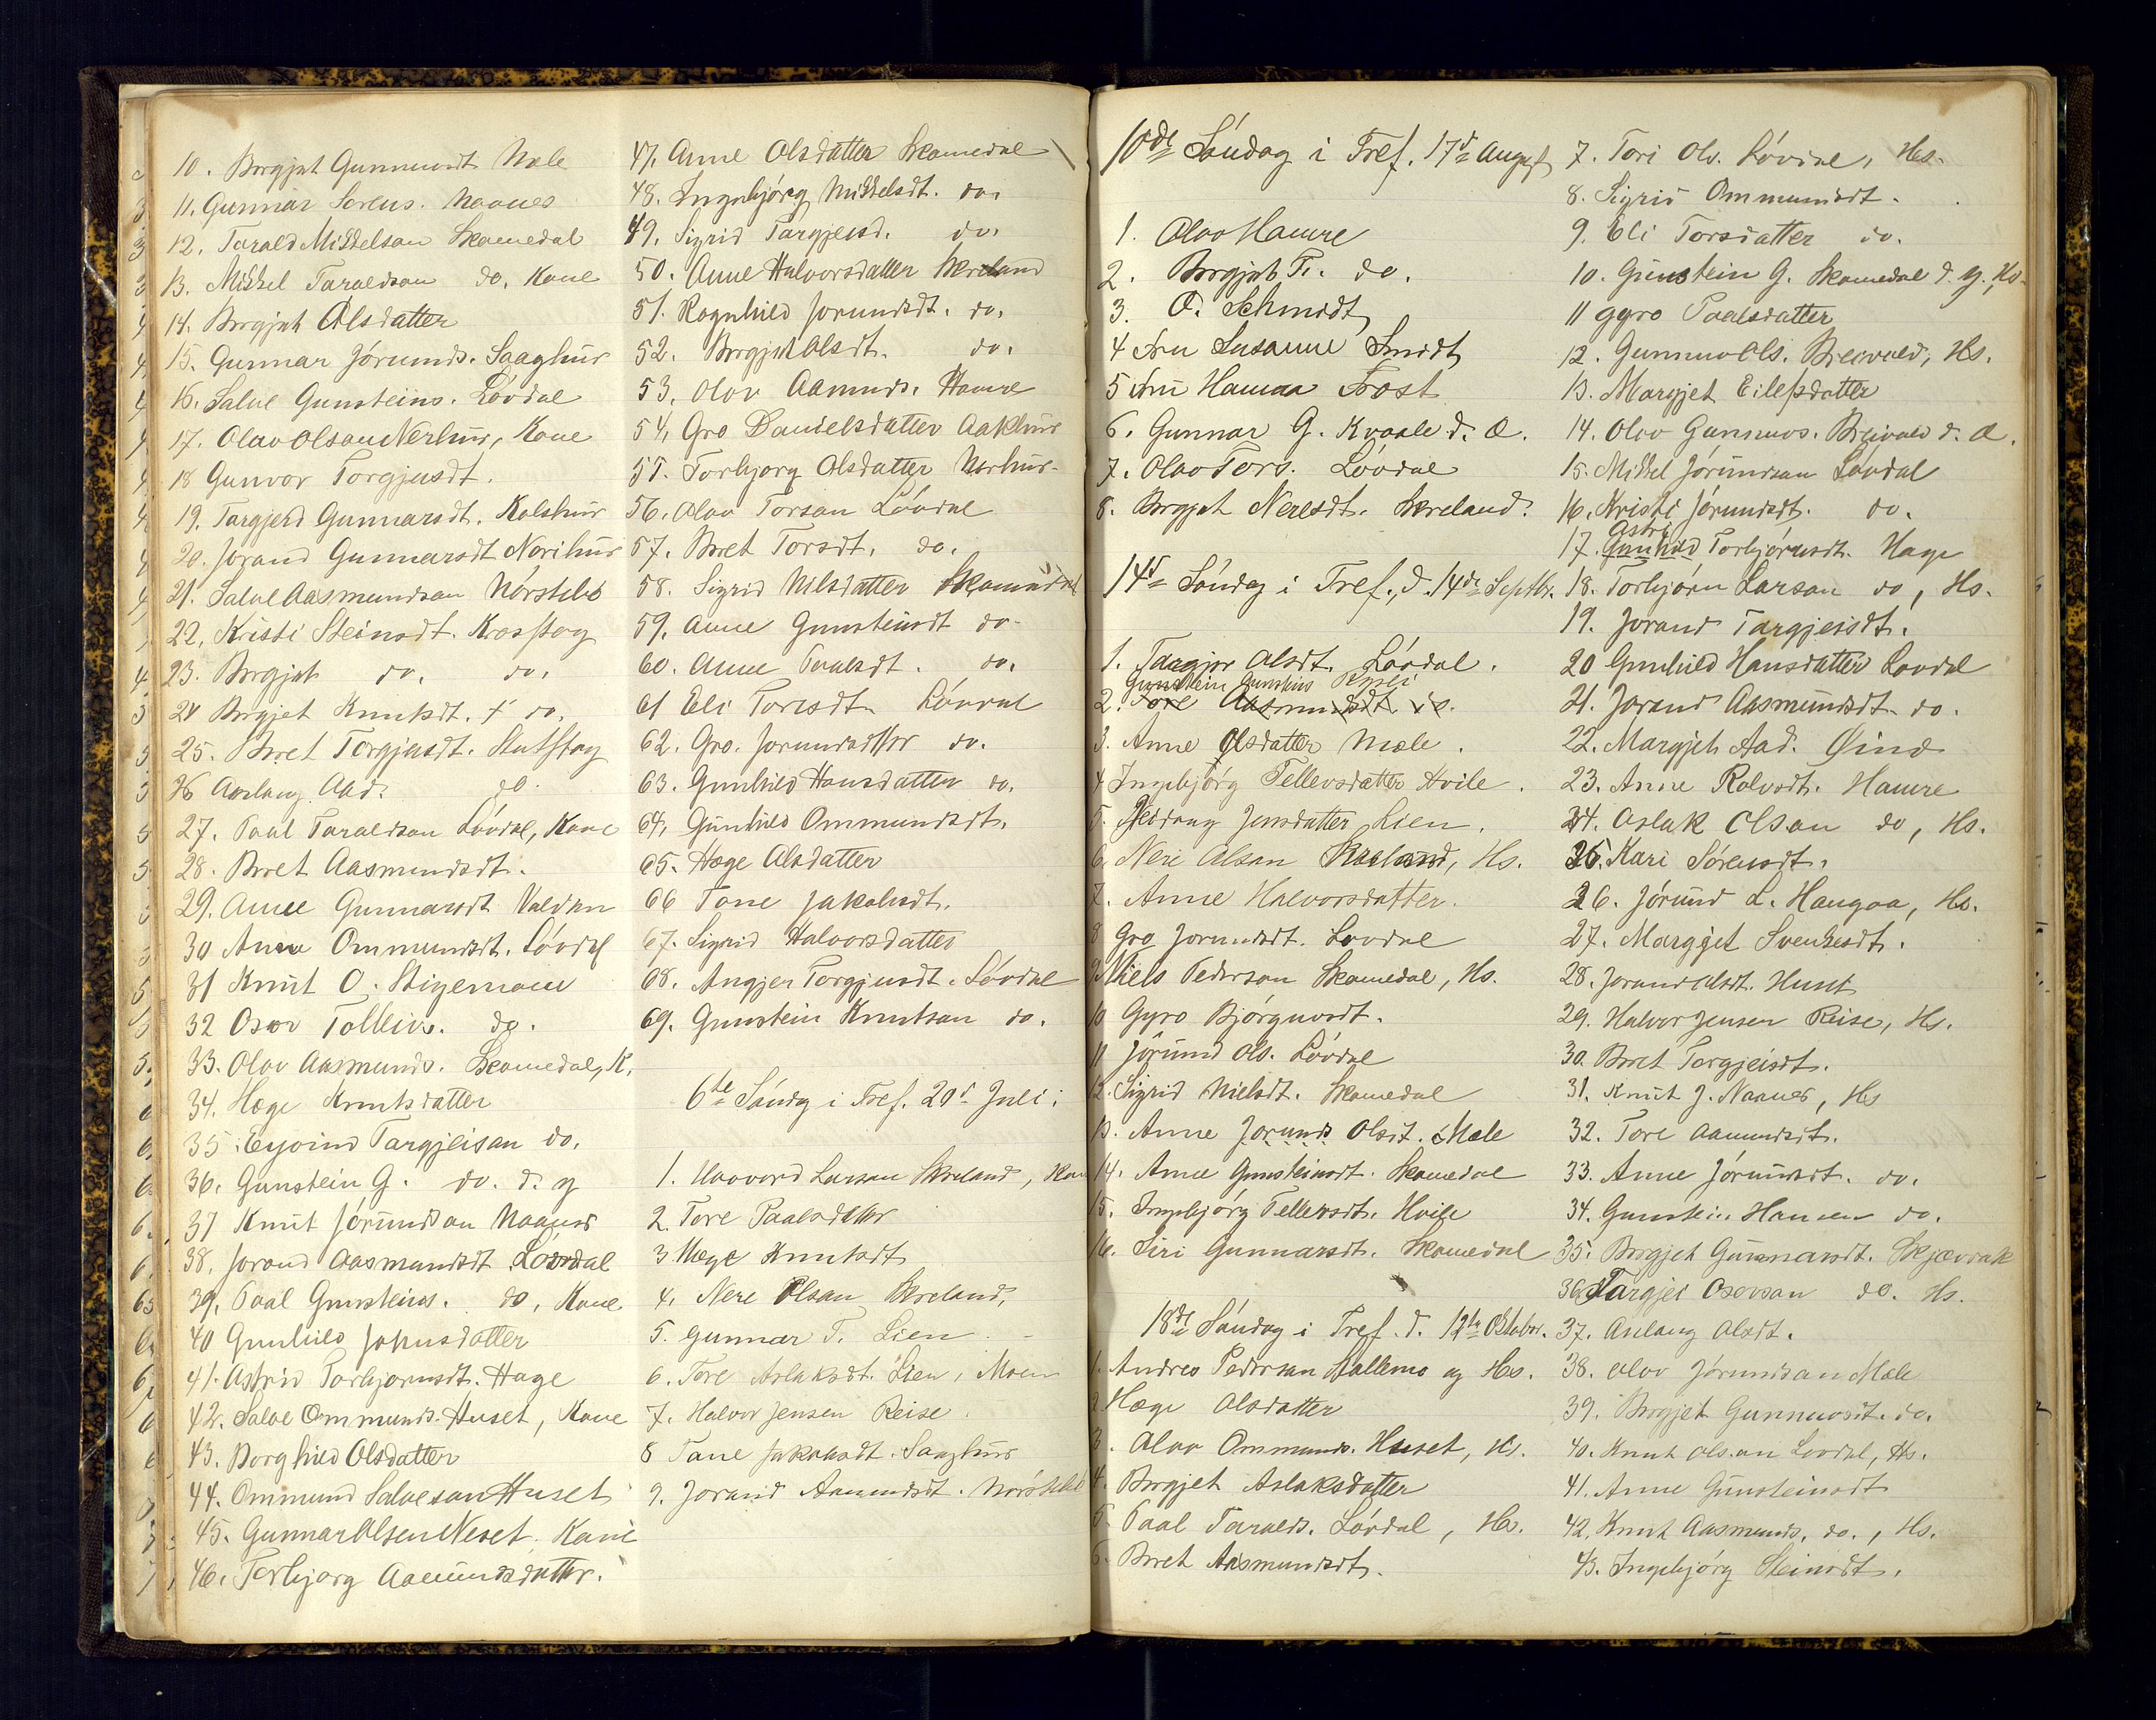 10. Borgjet Gunnuvsdt. Mæle
11. Gunnar Sørens. Naanes
12. Tarald Mikkelson Skomedal
13. Mikkel Taraldson do, Kone
14. Borgjet Olsdatter
15. Gunnar Jørunds. Saaghus
16. Salve Gunsteins. Løvdal
17. Olav Olsen Nerhus, Kone
18 Gunvor Torgjusdt.
19. Targjerd Gunnarsdt. Kalshus
20. Jorand Gunnarsdt Norihus
21. Salve Aasmundson Nørstebø
22. Kristi Steinsdt. Krosstøg
23. Borgjet do, do,
24 Borgjet Knutsdt. + do.
25. Boret Torgjusdt. Stutstøg
26 Aaslaug Aad. do.
27. Paal Taraldson Løvdal, Kone
28. Boret Aasmundsdt.
29. Anne Gunnarsdt
30 Anne Ommundsdt. Løvdal
31 Knut O. Stigemoen
32 Osov Tolleivs. do.
33. Olav Aasmunds. Skomedal, K.
34. Hæge Knutsdatter
35. Eyvind Targjeisan do.
36. Gunstein G. do. d. y
37 Knut Jørundsan Naanes
38. Jorand Aasmundsdt Løvdal
39. Paal Gunsteins. do, Kone
40 Gunhild Jonsdatter
41. Astrid Torbjørnsdt. Hage
42. Salve Ommunds. Huset, Kone
43. Borghild Olsdatter
44. Ommund Salvesan Huset
45. Gunnar Olsen Neset. Kone
46. Torbjørg Aamundsdatter.
47. Anne Olsdatter Skomedal
48. Ingebjørg Mikkelsdt. do.
49. Sigrid Targjeisd. do.
50. Anne Halvorsdatter Skreland
51. Ragnhild Jorundsdt. do.
52. Borgjet Olsdt. do.
53. Olov Aamunds. Hamre
54. Gro Danielsdatter Aakhus
55. Torbjørg Olsdatter Nerhus
56. Olav Torsan Løvdal
57. Boret Torsdt. do.
58. Sigrid Nilsdatter Skomedal
59. Anne Gunsteinsdt do
60. Anne Paalsdt. do.
61 Eli Toresdt. Løvdal
62. Gro. Jorundsdtter do.
63. Gunhild Hansdatter do.
64. Gunhild Ommundsdt.
65. Hæge Olsdatter
66 Tone Jakobsdt.
67. Sigrid Halvorsdatter
68. Angjer Torgjusdt. Løvdal
69. Gunstein Knutsan do.
6te Søndg i Tref. 20d Juli:
1. Haavord Larsan Skreland, Kone
2. Tore Paalsdatter
3 Hæge Knutsdt
4. Nere Olsan Skreland,
5. Gunnar T. Lien
6. Tore Aslaksdt. Lien, Moen
7. Halvor Jensen Reise
8 Tone Jakobsdt. Saaghus
9. Jorand Aamundsdt. Nørstebø
10de Søndag i Tref. 17de August
1. Olav Hamre
2. Borgjet T. do.
3. O. Schmidt
4 Fru Susanne Smidt
5 Fru Hanna Frost
6. Gunnar G. Kvaale d. Æ.
7. Olav Tors. Løvdal
8. Borgjet Neresdt. Skreland.
14d Søndag i Tref., d. 14de Septbr.
1. Targjer Olsdt. Løvdal.
Gunstein Gunsteins Rysli
2. Tore Aasmundsdt. do.
3. Anne Olsdatter Mæle.
4 Ingebjørg Tellevsdatter Hvile.
5. Neidang Jensdatter Lien.
6. Nere Olsan Skreland, Hs.
7. Anne Halvorsdatter.
8 Gro Jorundsdt. Løvdal
9 Niels Pedersan Skomedal, Hs.
10 Gyro Bjørgusdt.
11 Jørund Ols. Løvdal
12. Sigrid Nielsdt. Skomedal
13. Anne Jorunds Olsdt. Mæle
14. Anne Gunsteinsdt. Skomedal
15. Ingebjørg Tellevsdt. Hvile
16. Siri Gunnarsdt. Skomedal
18de Søndag i Tref. d. 12te Oktober.
1. Andreas Pedersan Hallemo og Hs.
2 Hæge Olsdatter
3. Olov Ommunds. Huset, Hs.
4. Borgjet Aslaksdatter
5. Paal Taralds. Løvdal, Hs.
6. Boret Aasmundsdt.
7. Tori Ols. Løvdal, Hs.
8. Sigrid Ommundsdt.
9. Eli Torsdatter do.
10. Gunstein G. Skomedal d. y., Hs.
11 Gyro Paalsdatter
12. Gunnuv Ols. Breivald, Hs.
13. Margjet Eilefsdatter
14. Olov Gunnuvs. Breivald d. Æ.
15. Mikkel Jørundson Løvdal
16. Kristi Jørundsdt. do.
Astri
17. Gunhild Torbjørnsdt. Hage
18. Torbjørn Larsan do, Hs.
19. Jorand Targjeisdt.
20 Gunhild Hansdatter Løvdal
21. Jorand Aasmundsdt. do.
22. Margjet Aad. Øind
23. Anne Rolvsdt. Hamre
24. Aslak Olsan do, Hs.
25. Kari Sørensdt.
26. Jørund L. Haugaa, Hs.
27. Margjet Svenkesdt.
28. Jorand Olsdt. Huset
29. Halvor Jensen Reise, Hs.
30. Boret Torgjeisdt.
31. Knut J. Naanes, Hs
32. Tore Aamundsdt.
33. Anne Jørundsdt. do.
34. Gunstein Hansen do.
35. Borgjet Gunnarsdt. Skjævdal
36 Targjei Osovsan do. Hs.
37. Aslaug Olsdt.
38. Olov Jørundsan Mæle
39. Borgjet Gunnuvsdt. do.
40. Knut Olsan Løvdal, Hs.
41. Anne Gunsteinsdt
42. Knut Aasmunds. do., Hs.
43. Ingebjørg Steinsdt.